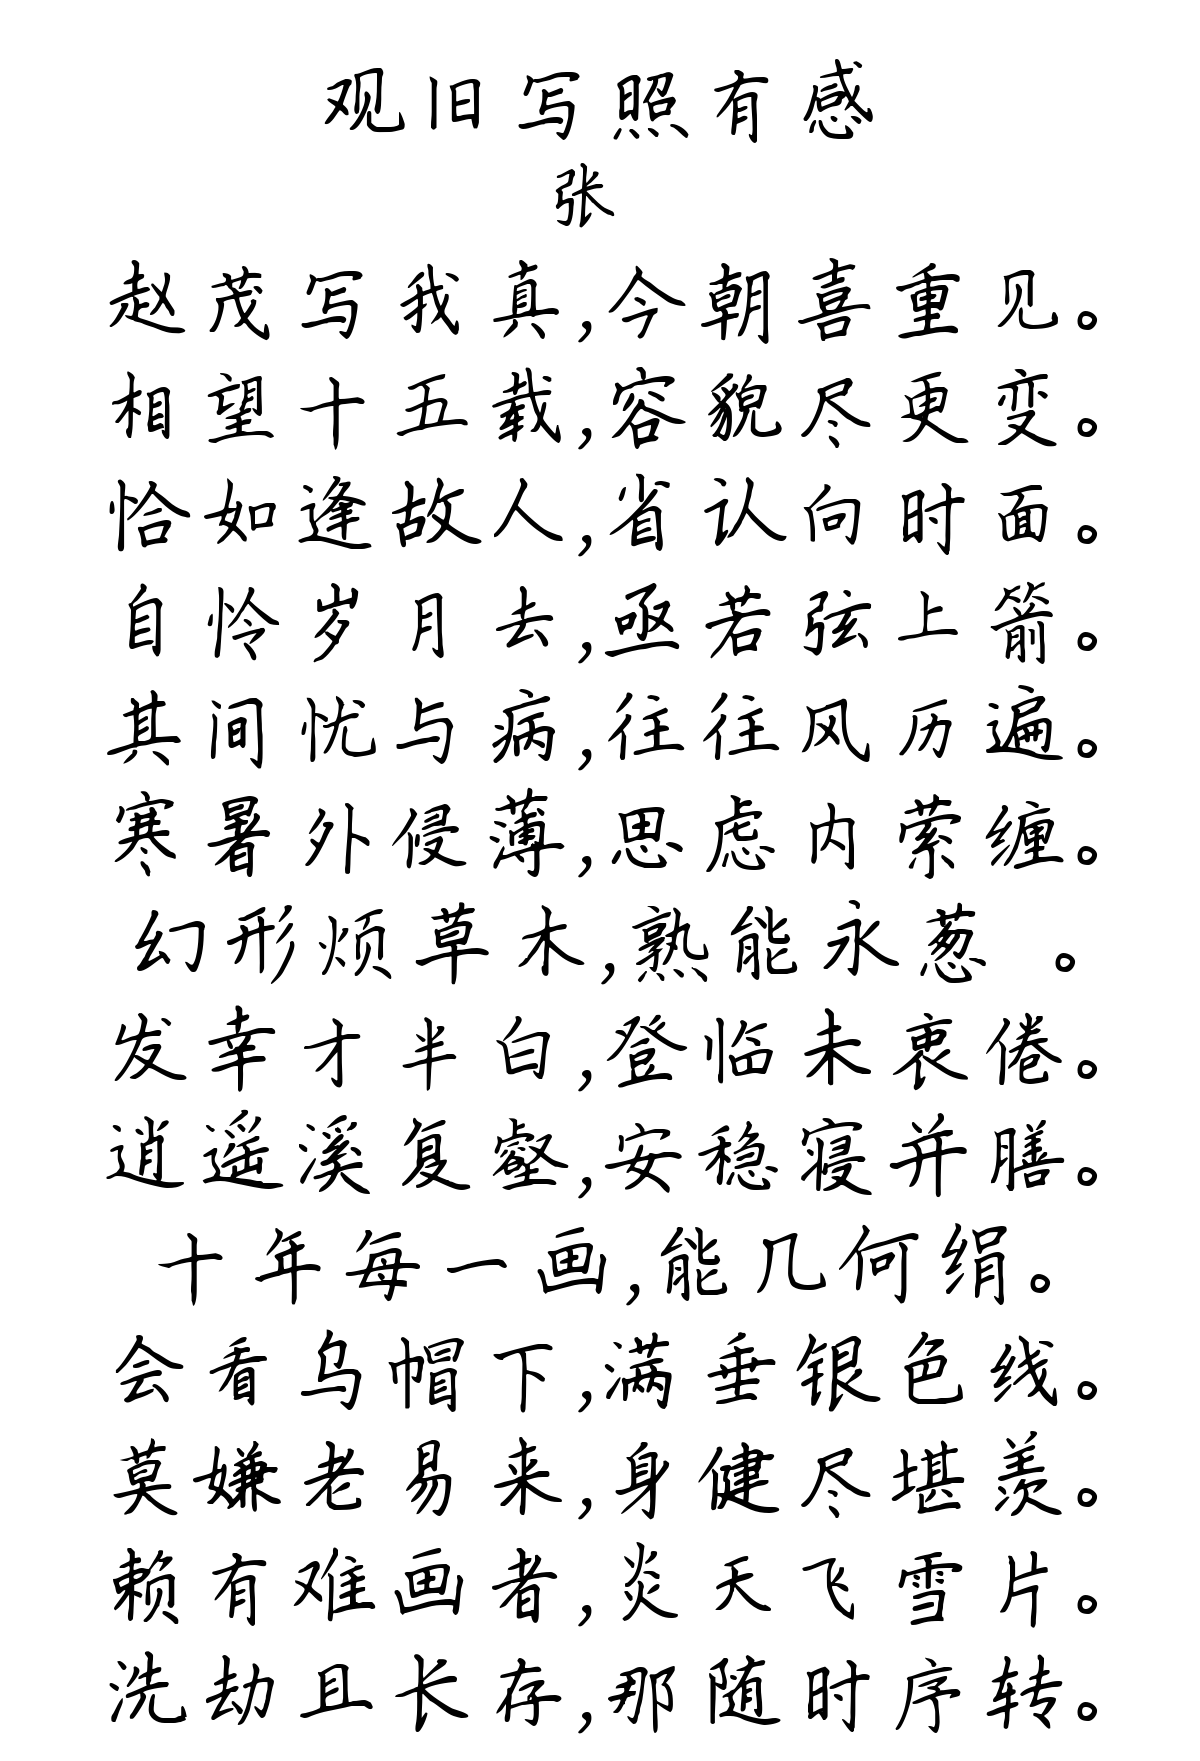 观旧写照有感
张
赵茂写我真,今朝喜重见。
相望十五载,容貌尽更变。
恰如逢故人,省认向时面。
自怜岁月去,亟若弦上箭。
其间忧与病,往往风历遍。
寒暑外侵薄,思虑内萦缠。
幻形烦草木,熟能永葱 。
发幸才半白,登临未衷倦。
逍遥溪复壑,安稳寝并膳。
十年每一画,能几何绢。
会看乌帽下,满垂银色线。
莫嫌老易来,身健尽堪羡。
赖有难画者,炎天飞雪片。
洗劫且长存,那随时序转。